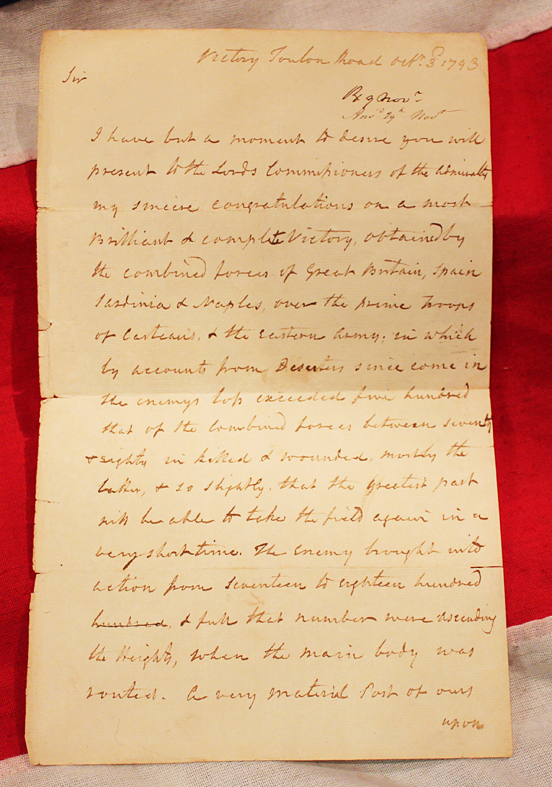 Victory Toulon Road Octr. 3d 1793
Sir
Rx 9 Novr.
Ansd 29th Novr
I have but a moment to desire you will
present to the Lords Commissioners of the Admiralty
my sincere congratulations on a most
Brilliant & complete Victory, obtained by
the combined forces of Great Britain, Spain
Sardinia & Naples, over the prime Troops
of Carteaux, & the Eastern Army; in which
by accounts from Deserters since come in
the enemys loss exceeded five hundred
that of the combined forces between seventy
& eighty in killed & wounded, mostly the
latter, & so slightly, that the greatest part
will be able to take the field again in a
very short time. The Enemy brought into
action from seventeen to eighteen hundred
hundred, & full that number were ascending
the Heights, when the main body was
routed. A very material Post of ours
upon